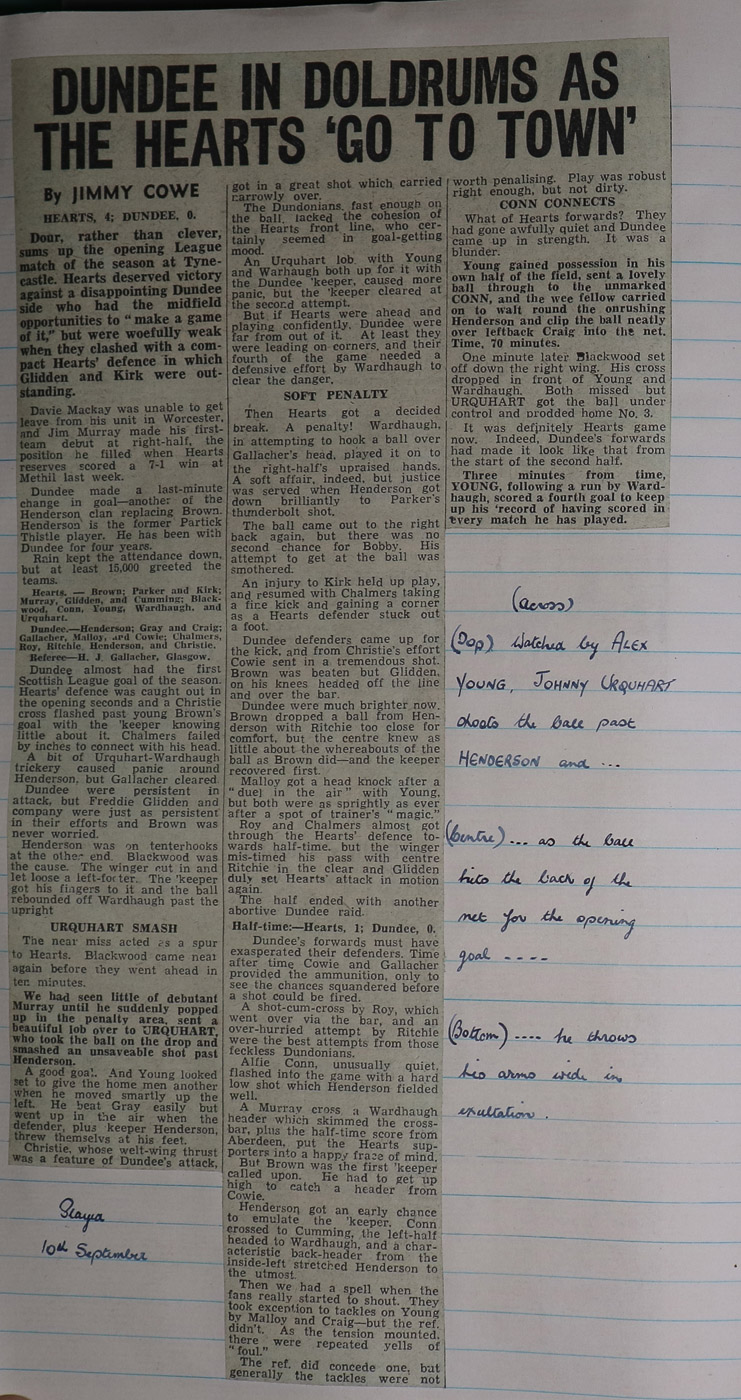 DUNDEE IN DOLDRUMS AS
THE HEARTS 'GO TO TOWN'
By JIMMY COWE
HEARTS, 4; DUNDEE, 0.
Dour, rather than clever,
sums up the opening League
match of the season at Tyne-
castle. Hearts deserved victory
against a disappointing Dundee
side who had the midfield
opportunities to "make a game
of it," but were woefully weak
when they clashed with a com-
pact Hearts' defence in which
Glidden and Kirk were out-
standing.
Davie Mackay was unable to get
leave from his unit in Worcester,
and Jim Murray made his first-
team debut at right-half, the
position he filled when Hearts
reserves scored a 7-1 win at
Methil last week.
Dundee made a last-minute
change in goal—another of the
Henderson clan replacing Brown.
Henderson is the former Partick
Thistle player. He has been with
Dundee for four years.
Rain kept the attendance down,
but at least 15,000 greeted the
teams.
Hearts. — Brown; Parker and Kirk;
Murray, Glidden, and Cumming; Black-
wood, Conn, Young, Wardhaugh, and
Urquhart.
Dundee.—Henderson; Gray and Craig;
Gallacher, Malloy, and Cowie; Chalmers,
Roy, Ritchie, Henderson, and Christie.
Referee—H. J. Gallacher, Glasgow.
Dundee almost had the first
Scottish League goal of the season.
Hearts' defence was caught out in
the opening seconds and a Christie
cross flashed past young Brown's
goal with the 'keeper knowing
little about it. Chalmers failed
by inches to connect with his head.
A bit of Urquhart-Wardhaugh
trickery caused panic around
Henderson, but Gallacher cleared.
Dundee were persistent in
attack, but Freddie Glidden and
company were just as persistent
in their efforts and Brown was
never worried.
Henderson was on tenterhooks
at the other end. Blackwood was
the cause. The winger cut in and
let loose a left-footer. The 'keeper
got his fingers to it and the ball
rebounded off Wardhaugh past the
upright
URQUHART SMASH
The near miss acted as a spur
to Hearts. Blackwood came near
again before they went ahead in
ten minutes.
We had seen little of debutant
Murray until he suddenly popped
up in the penalty area, sent a
beautiful lob over to URQUHART,
who took the ball on the drop and
smashed an unsaveable shot past
Henderson.
A good goal. And Young looked
set to give the home men another
when he moved smartly up the
left. He beat Gray easily but
went up in the air when the
defender, plus keeper Henderson,
threw themselvs at his feet.
Christie, whose welt-wing thrust
was a feature of Dundee's attack,
got in a great shot which carried
narrowly over.
The Dundonians, fast enough on
the ball, lacked the cohesion of
the Hearts front line, who cer-
tainly seemed in goal-getting
mood.
An Urquhart lob with Young
and Warhaugh both up for it with
the Dundee 'keeper, caused more
panic, but the 'keeper cleared at
the second attempt.
But if Hearts were ahead and
playing confidently, Dundee were
far from out of it. At least they
were leading on corners, and their
fourth of the game needed a
defensive effort by Wardhaugh to
clear the danger.
SOFT PENALTY
Then Hearts got a decided
break. A penalty! Wardhaugh,
in attempting to hook a ball over
Gallacher's head, played it on to
the right-half's upraised hands.
A soft affair, indeed, but justice
was served when Henderson got
down brilliantly to Parker's
thunderbolt shot.
The ball came out to the right
back again, but there was no
second chance for Bobby. His
attempt to get at the ball was
smothered.
An injury to Kirk held up play,
and resumed with Chalmers taking
a fire kick and gaining a corner
as a Hearts defender stuck out
a foot.
Dundee defenders came up for
the kick, and from Christie's effort
Cowie sent in a tremendous shot.
Brown was beaten but Glidden,
on his knees headed off the line
and over the bar.
Dundee were much brighter now.
Brown dropped a ball from Hen-
derson with Ritchie too close for
comfort, but the centre knew as
little about the whereabouts of the
ball as Brown did—and the keeper
recovered first.
Malloy got a head knock after a
"duel in the air" with Young,
but both were as sprightly as ever
after a spot of trainer's "magic."
Roy and Chalmers almost got
through the Hearts' defence to-
wards half-time, but the winger
mis-timed his pass with centre
Ritchie in the clear and Glidden
duly set Hearts' attack in motion
again.
The half ended with another
abortive Dundee raid.
Half-time:—Hearts, 1; Dundee, 0.
Dundee's forwards must have
exasperated their defenders. Time
after time Cowie and Gallacher
provided the ammunition, only to
see the chances squandered before
a shot could be fired.
A shot-cum-cross by Roy, which
went over via the bar, and an
over-hurried attempt by Ritchie
were the best attempts from those
feckless Dundonians.
Alfie Conn, unusually quiet,
flashed into the game with a hard
low shot which Henderson fielded
well.
A Murray cross a Wardhaugh
header which skimmed the cross-
bar, plus the half-time score from
Aberdeen, put the Hearts sup-
porters into a happy fraze of mind.
But Brown was the first 'keeper
called upon. He had to get up
high to catch a header from
Cowie.
Henderson got an early chance
to emulate the 'keeper. Conn
crossed to Cumming, the left-half
headed to Wardhaugh, and a char-
acteristic back-header from the
inside-left stretched Henderson to
the utmost.
Then we had a spell when the
fans really started to shout. They
took exception to tackles on Young
by Malloy and Craig—but the ref.
didn't. As the tension mounted,
there were repeated yells of
"foul."
The ref. did concede one, but
generally the tackles were not
worth penalising. Play was robust
right enough, but not dirty.
CONN CONNECTS
What of Hearts forwards? They
had gone awfully quiet and Dundee
came up in strength. It was a
blunder.
Young gained possession in his
own half of the field, sent a lovely
ball through to the unmarked
CONN, and the wee fellow carried
on to walk round the onrushing
Henderson and clip the ball neatly
over leftback Craig into the net.
Time, 70 minutes.
One minute later Blackwood set
off down the right wing. His cross
dropped in front of Young and
Wardhaugh. Both missed but
URQUHART got the ball under
control and prodded home No. 3.
It was definitely Hearts game
now. Indeed, Dundee's forwards
had made it look like that from
the start of the second half.
Three minutes from time,
YOUNG, following a run by Ward-
haugh, scored a fourth goal to keep
up his 'record of having scored in
every match he has played.
(across)
(Top) Watched by ALEX
YOUNG, JOHNNY URQUHART
shoots the ball past
HENDERSON and ...
(Centre) ... as the ball
hits the back of the
net for the opening
goal ----
(Bottom) .... he throws
his arms wide in
exultation.
Played
10th September